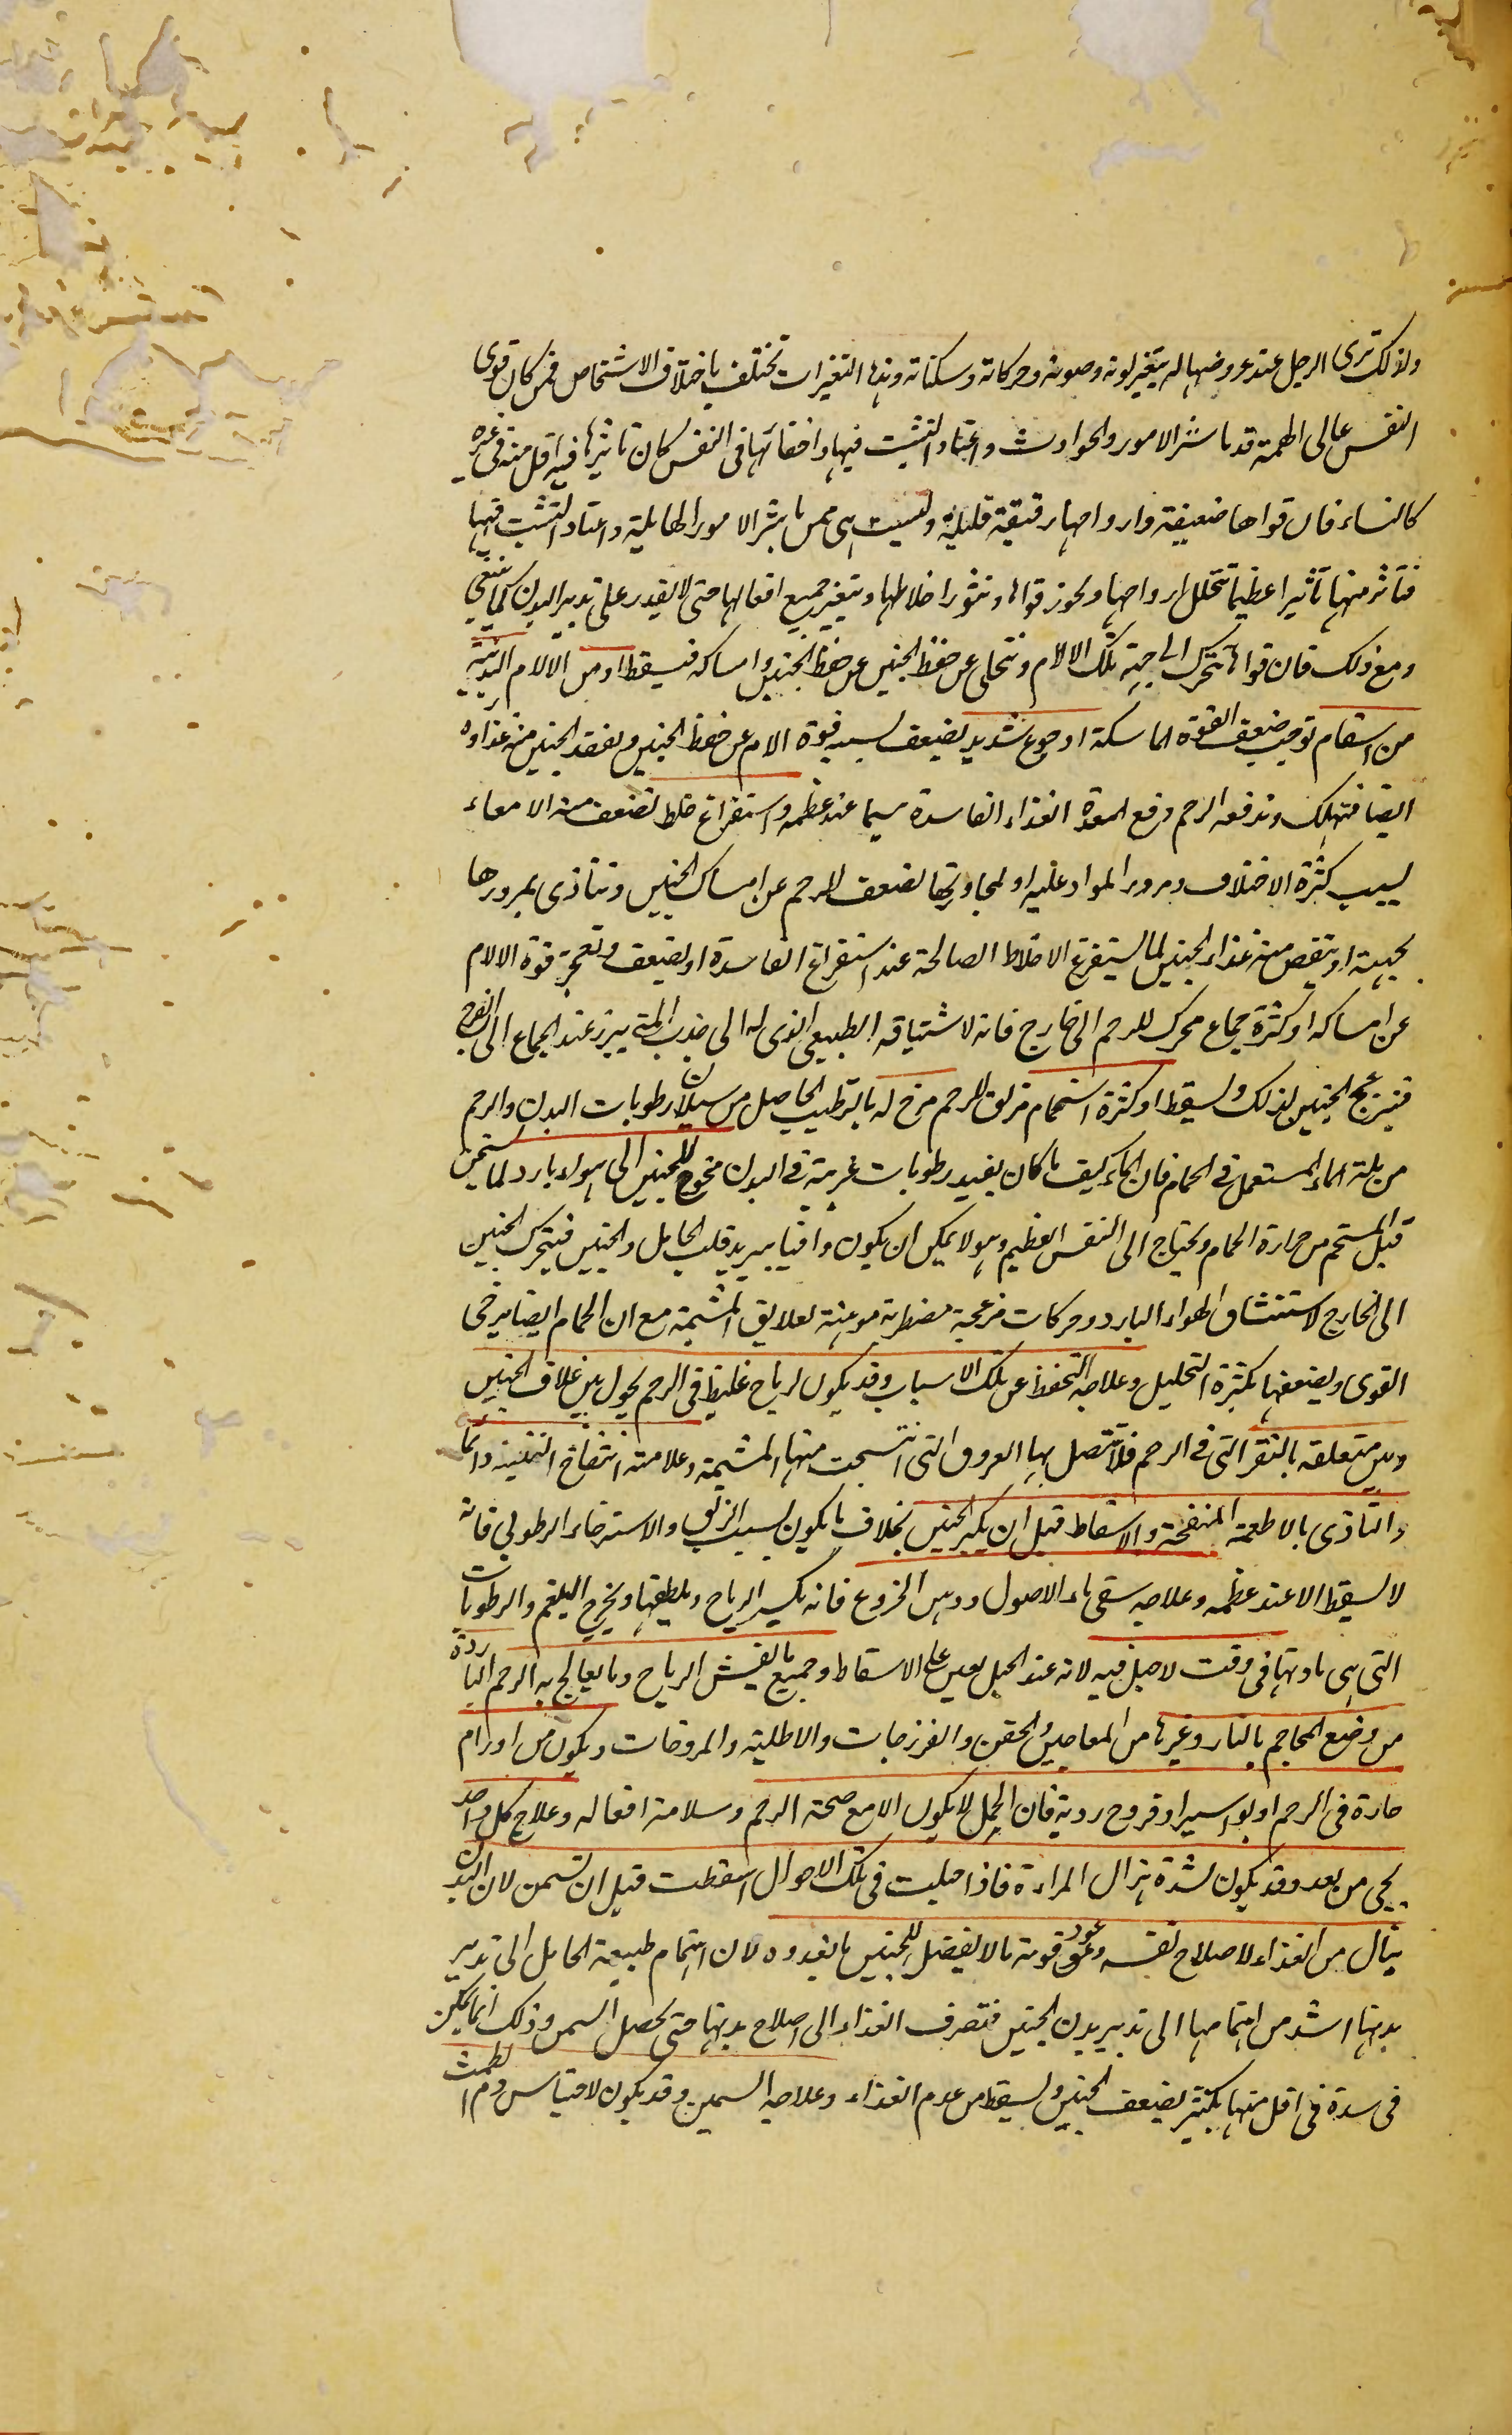 ولذلك ترى الرجل عند عروضها له يتغير لونه وصوته وحركاته وسكناته وهذا التغيرات تختلف باختلاف الاشخاص فمن كان قوى
النفس عالى الهمة قد باشر الامور والحوادث واعتاد التثبت فيها واخفائها فى النفس كان تاثيرها فيه اقل منه فى غيره
كالنساء فان قواها ضعيفة وارواحها رقيقة قليلة وليست هى ممن باشر الامور الهايلة واعتاد التثبت فيها
فتاثر منها تاثيرا عظيما تتحلل ارواحها وتخور قواها وتثور اخلاطها ويتغير جميع افعالها حتى لا تقدر على تدبير البدن كما ينبغى
ومع ذلك فان قواها تتحرك الى جهة تلك الالام وتتخلى عن حفظ الجنين عن حفظ الجنين وامساكه فيسقط او من الالام البدنية
من اسقام توجب ضعف القوة الماسكة او جوع شديد يضعف بسببه قوة الام عن حفظ الجنين ويفقد الجنين منه غذاوه
ايضا فتهلك وتدفعه الرحم ودفع المعدة الغذاء الفاسدة سيما عند عظمه واستفراغ خلط تضعف منه الامعاء
بسبب كثرة الاختلاف ومرور المواد عليه اولمجاورتها تضعف الرحم عن امساك الجنين وتتاذى بمرورها
بجهته او ينقص منه غذاء الجنين لما يستفرغ الاخلاط الصالحة عند استفراغ الفاسدة او يضعف وتعجز قوة الالام
عن امساكه او كثرة جماع محرك للرحم الى خارج فانه لاشتياقه الطبيعى الذى له الى جذب المنى يبرز عند الجماع الى الفرج
فينزعج الجنين لذلك ويسقط او كثرة استحمام مزلق للرحم مرخ له بالترطيب الحاصل من سيلان رطوبات البدن والرحم
من بلة الماء المستعمل فى الحمام فان الماء كيف ما كان يفيد رطوبات غريبة فى البدن مخرج للجنين الى هواء بارد لما يسخن
قبل المستحم من حرارة الحمام ويحتاج الى النفس العظيم وهو لا يمكن ان يكون وافيا بتبريد قلب الحامل والجنين فيتحرك الجنين
الى الخارج لاستنشاق الهواء البارد وحركات مزعجة مضطربة موهنة لعلايق المشيمة مع ان الحمام ايضا يرخى
القوى ويضعفها بكثرة التحليل وعلاجه التحفظ عن تلك الاسباب وقد يكون لرياح غليظ فى الرحم يحول بين غلاف الجنين
وبين متعلقه بالنقر التى فى الرحم فلا تتصل بها العروق التى انتسجت منها المشيمة وعلامته انتفاخ دائما
والتاذى بالاطعمة المنفخة والاسقاط قبل ان يكبر الجنين بخلاف ما يكون بسبب الزلق والاسترخاء الرطوبى فانه
لا يسقط الا عند عظمه وعلاجه سقى ماء الاصول ودهن الخروع فانه يكسر الرياح ويلطفها ويخرج البلغم والرطوبات
التى هى مادتها فى وقت لا حبل فيه لانه عند الحبل يعين على الاسقاط وجميع ما يفش الرياح وما يعالج به الرحم الباردة
من وضع المحاجم بالنار وغيرها من المعاجين والحقن والفرزجات والاطلية والمروخات ويكون من اورام
حارة فى الرحم او بواسير او قروح ردية فان الحمل لا يكون الا مع صحة الرحم وسلامة افعاله وعلاج كل واحد
يجى من بعد وقد يكون لشدة هزال المراءة فاذا حبلت فى تلك الاحوال اسقطت قبل ان تسمن لان البدن
ينال من الغذاء لاصلاح نفسه وعود قوته ما لا يفضل للجنين ما يغدوه لان اهتمام طبيعة الحامل الى تدبير
بدنها اشد من اهتمامها الى تدبير بدن الجنين فتصرف الغذاء الى اصلاح بدنها حتى يحصل السمن وذلك انما يمكن
فى مدة فى اقل منها بكثير يضعف الجنين ويسقط من عدم الغذاء وعلاجه السمين وقد يكون لاحتباس دم الطمث